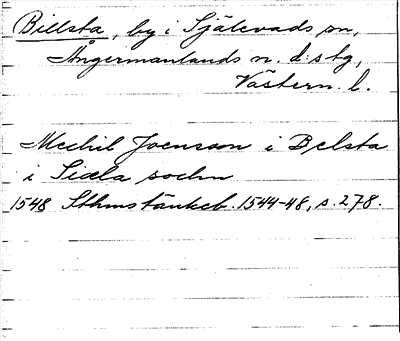 Billsta, by i Själevads sn,
Ångermanlands n. d:stg,
Västern. l.
Mechil Joensson i Belsta
i Siæla sochn
1548 Sthms tänkeb. 1544-48, s. 278.